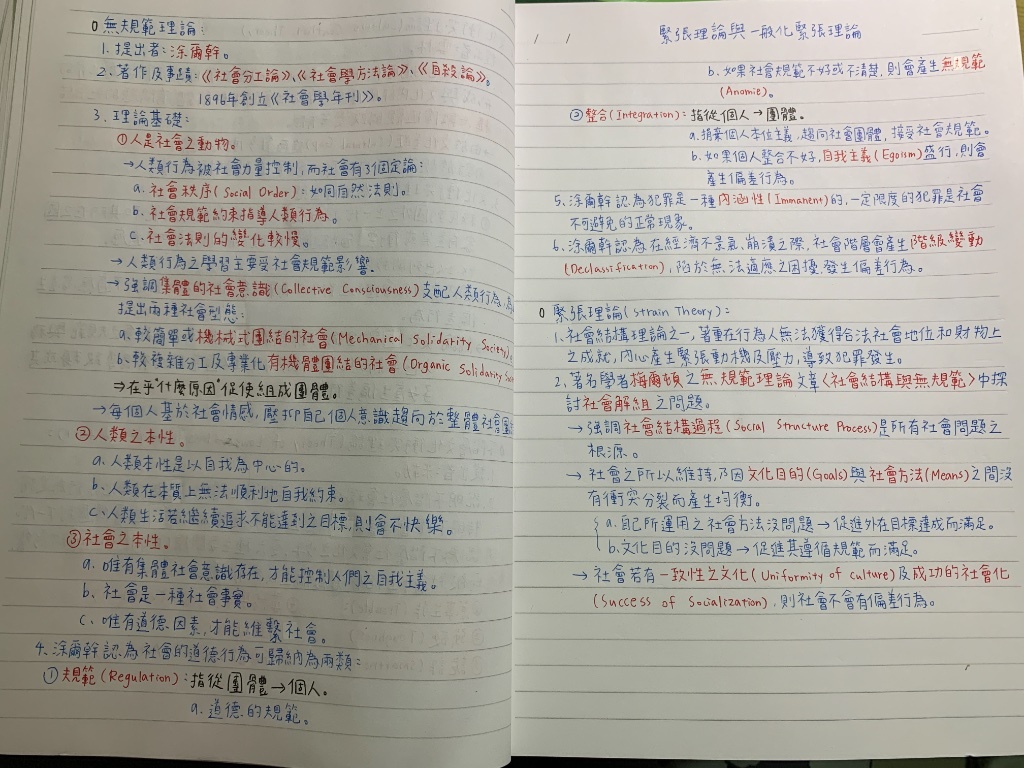 o 無規範理論:
1. 提出者: 涂爾幹。
2. 著作及事蹟:《社會分工論》、《社會學方法論》、《自殺論》。
1896年創立《社會學年刊》。
3. 理論基礎:
①人是社會之動物。
→人類行為被社會力量控制,而社會有3個定論:
a. 社會秩序(Social Order): 如同自然法則。
b. 社會規範約束指導人類行為。
c. 社會法則的變化較慢。
→人類行為之學習主要受社會規範影響.
→強調集體的社會意識(Collective Consciousness)支配人類行為,
提出兩種社會型態:
a. 較簡單或機械式團結的社會(Mechanical Solidarity Society)。
b. 較複雜分工及專業化有機體團結的社會(Organic Solidarity
⇒在乎"什麼原因"促使組成團體。
→每個人基於社會情感,壓抑自己個人意識趨向於整體社會
②人類之本性。
a. 人類本性是以自我為中心的。
b. 人類在本質上無法順利地自我約束。
c. 人類生活若繼續追求不能達到之目標,則會不快樂。
③社會之本性。
a. 唯有集體社會意識存在,才能控制人們之自我主義。
b. 社會是一種社會事實。
c. 唯有道德因素,才能維繫社會。
4. 涂爾幹認為社會的道德行為可歸納為兩類:
①規範(Regulation): 指從團體→個人。
a. 道德的規範。
/ / 緊張理論與一般化緊張理論
b. 如果社會規範不好或不清楚,則會產生無規範
(Anomie)。
②整合(Integration): 指從個人→團體。
a. 捐棄個人本位主義,趨向社會團體,接受社會規範。
b. 如果個人整合不好,自我主義(Egoism)盛行,則會
產生偏差行為。
5. 涂爾幹認為犯罪是一種內涵性(Immanent)的,一定限度的犯罪是社會
不可避免的正常現象。
6. 涂爾幹認為在經濟不景氣、崩潰之際,社會階層會產生階級變動
(Declassification),陷於無法適應之困擾,發生偏差行為。
o 緊張理論(Strain Theory):
1. 社會結構理論之一,著重在行為人無法獲得合法社會地位和財物上
之成就,內心產生緊張動機及壓力,導致犯罪發生。
2. 著名學者梅爾頓之無規範理論文章《社會結構與無規範》中探
討社會解組之問題。
→ 強調社會結構過程(Social Structure Process)是所有社會問題之
根源。
→ 社會之所以維持,乃因文化目的(Goals)與社會方法(Means)之間沒
有衝突分裂而產生均衡。
a. 自己所運用之社會方法沒問題→促進外在目標達成而滿足。
b. 文化目的沒問題→促進其遵循規範而滿足。
→ 社會若有一致性之文化(Uniformity of culture)及成功的社會化
(Success of Socialization),則社會不會有偏差行為。